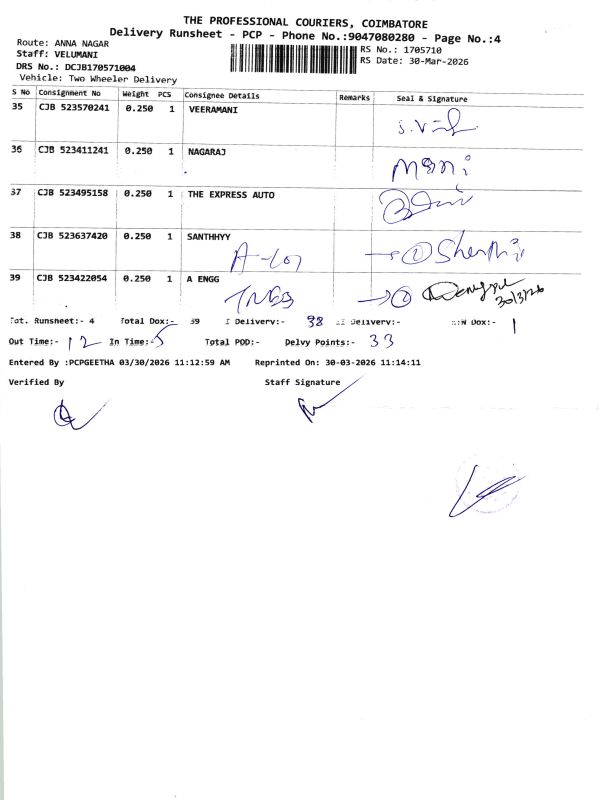 THE PROFESSIONAL COURIERS, COIMBATORE
Delivery Runsheet - PCP - Phone No.:9047080280 - Page No.:4
Route: ANNA NAGAR
RS No.: 1705710
Staff: VELUMANI
RS Date: 30-Mar-2026
DRS No.: DCJB170571004
Vehicle: Two Wheeler Delivery
S No Consignment No Weight PCS Consignee Details Remarks Seal & Signature
35 CJB 523570241 0.250 1 VEERAMANI
36 CJB 523411241 0.250 1 NAGARAJ
37 CJB 523495158 0.250 1 THE EXPRESS AUTO
38 CJB 523637420 0.250 1 SANTHHYY
39 CJB 523422054 0.250 1 A ENGG
30/3/26
Tot. Runsheet:- 4 Total Dox:- 39 I Delivery:- 38 II Delivery:- Dox:- 1
Out Time:- 12 In Time:- 5 Total POD:- Delvy Points:- 33
Entered By :PCPGEETHA 03/30/2026 11:12:59 AM Reprinted On: 30-03-2026 11:14:11
Verified By Staff Signature